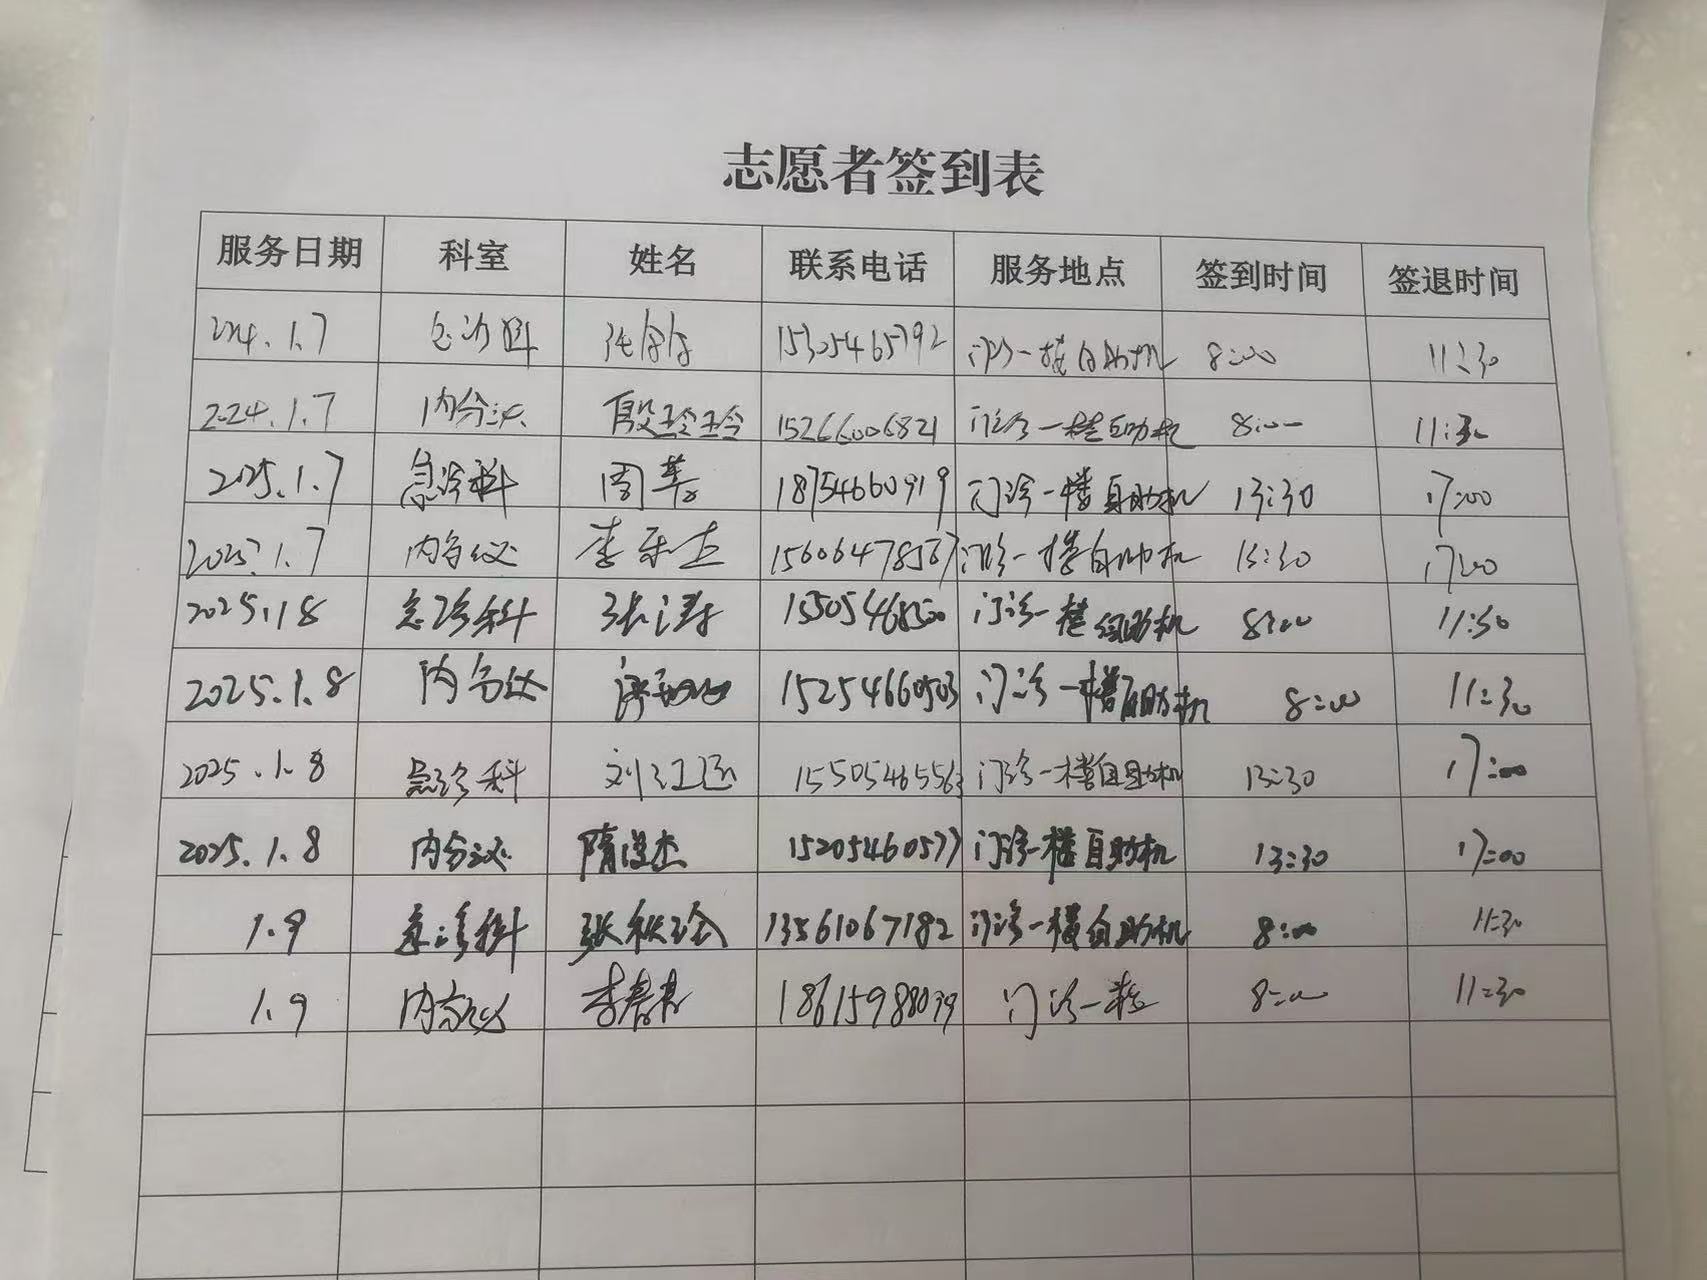 志愿者签到表
服务日期 科室 姓名 联系电话 服务地点 签到时间 签退时间
2024.1.7 急诊科 15305465792 门诊一楼自助机 8:00 11:30
2024.1.7 内分泌 殷玲玲 15266006821 门诊一楼自助机 8:00 11:30
2025.1.7 急诊科 周菁 18754660919 门诊一楼自助机 13:30 17:00
2025.1.7 内分泌 李乐杰 15606478567 门诊一楼自助机 13:30 17:00
2025.1.8 急诊科 张涛 15505468500 门诊一楼自助机 8:00 11:30
2025.1.8 内分泌 15254660503 门诊一楼自助机 8:00 11:30
2025.1.8 急诊科 刘江 15505465563 门诊一楼自助机 13:30 17:00
2025.1.8 内分泌 隋 杰 15205460577 门诊一楼自助机 13:30 17:00
1.9 急诊科 张秋玲 13561067182 门诊一楼自助机 8:00 11:30
1.9 内分泌 李春春 18615988039 门诊一楼 8:00 11:30